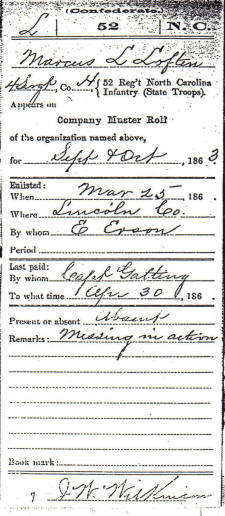 (Confederate.)
L 52 N.C.
Marcus L Loften
4 Sergt, Co. H, 52 Reg't North Carolina
Infantry (State Troops).
Appears on
Company Muster Roll
of the organization named above,
for Sept & Oct, 1863
Enlisted:
When Mar 25, 186 .
Where Lincoln Co.
By whom E Erson
Period
Last paid:
By whom Capt Gatling
To what time Apr 30, 186 .
Present or absent Absent
Remarks: Missing in action
Book mark:
7 J.W. Wilkinson